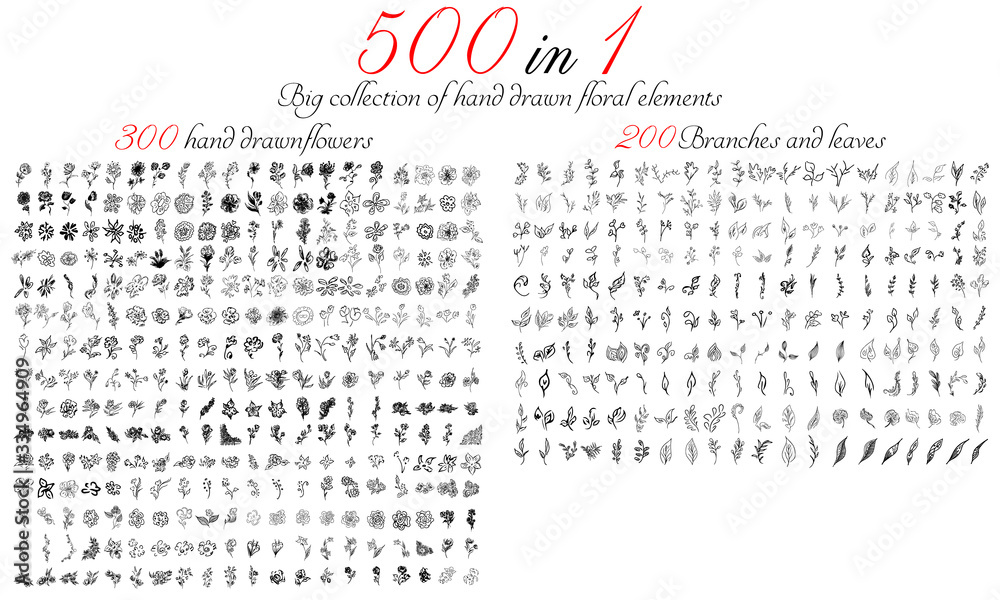 500 in 1
Big collection of hand drawn floral elements
300 hand drawnflowers
200 Branches and leaves
Adobe Stock
#334964909